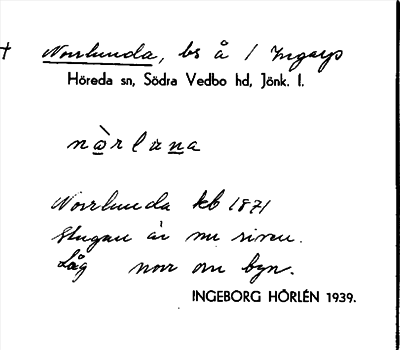 † Norrlunda, bs å / Ingarp
Höreda sn, Södra Vedbo hd, Jönk. l.
nòrluna
Norrlunda kb 1871
Stugan är nu riven.
Låg norr om byn.
INGEBORG HÖRLÉN 1939.